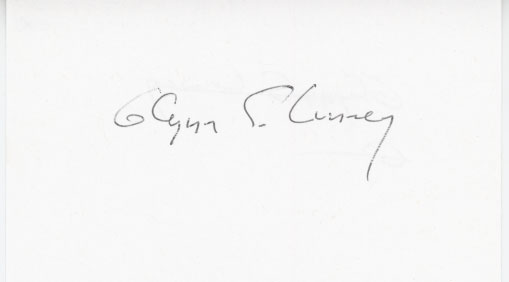 Glynn S. Lunney